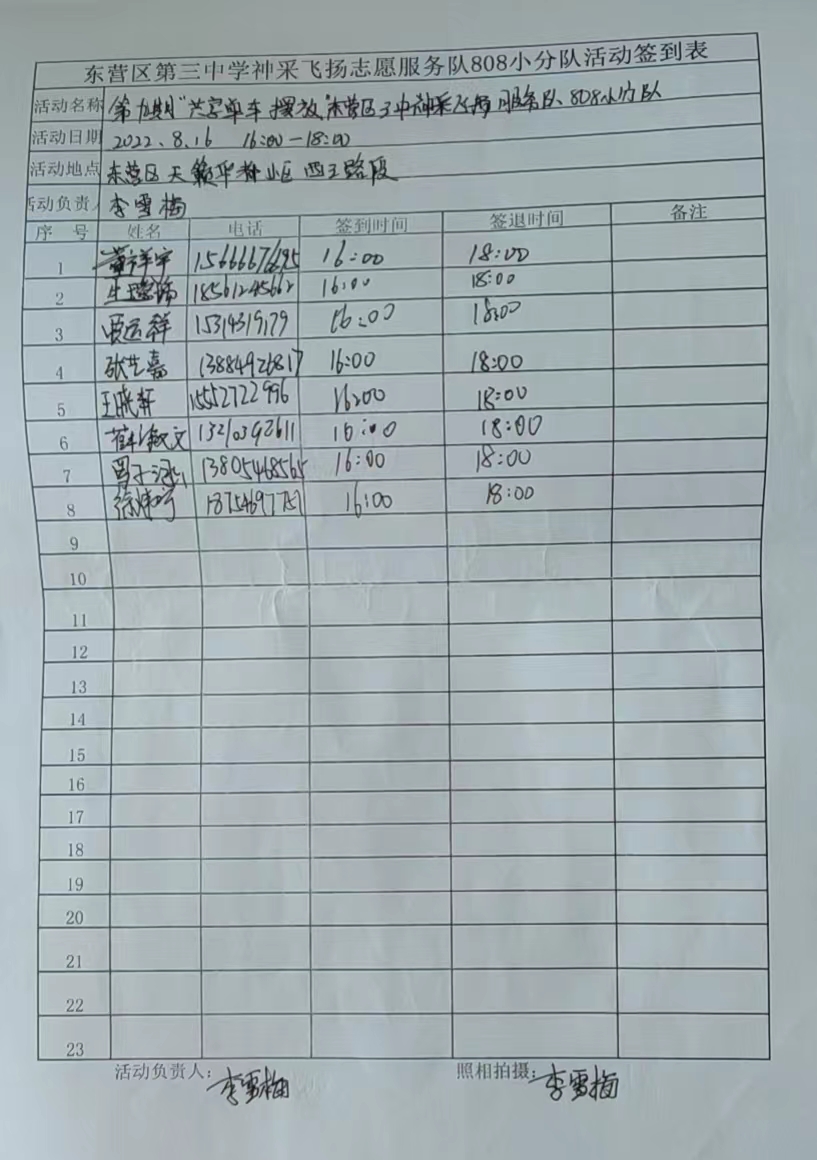 东营区第三中学神采飞扬志愿服务队808小分队活动签到表
活动名称 第九期"共享单车摆放"东营区三中神采飞扬服务队808小分队
活动日期 2022.8.16 16:00-18:00
活动地点 东营区天籁华都小区西三路段
活动负责人 李雪梅
序号 姓名 电话 签到时间 签退时间 备注
1 16:00 18:00
2 18561245662 16:00 18:00
3 贾运群 15314319179 16:00 18:00
4 张艺嘉 13884926817 16:00 18:00
5 王晓轩 15552722996 16:00 18:00
6 13210392611 16:00 18:00
7 13805468565 16:00 18:00
8 18754697757 16:00 18:00
9
10
11
12
13
14
15
16
17
18
19
20
21
22
23
活动负责人：李雪梅 照相拍摄：李雪梅